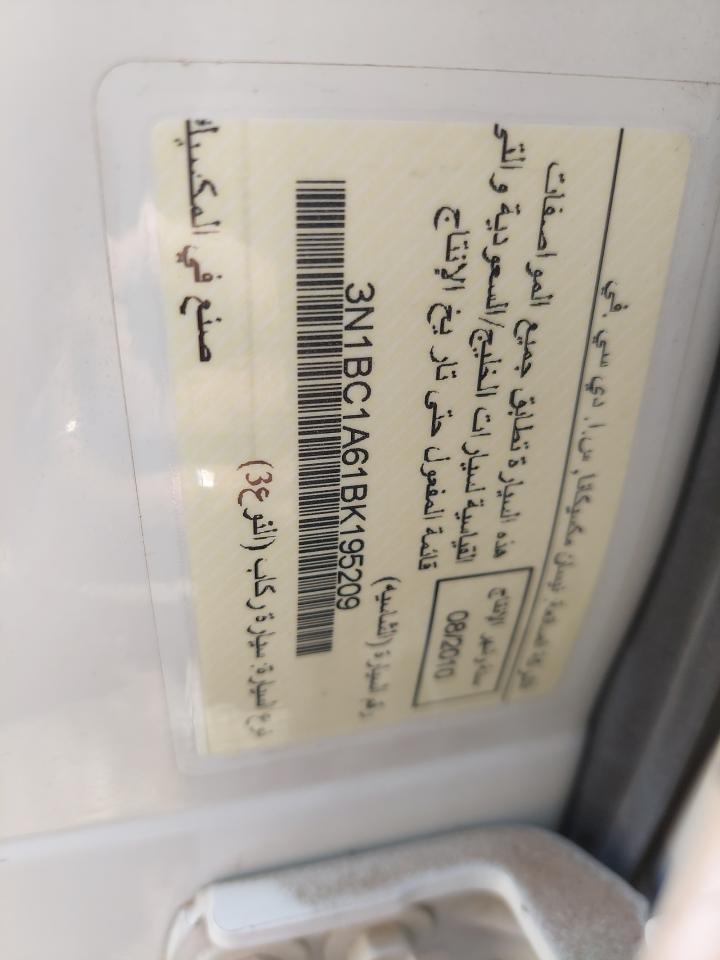 الشركة الصانعة نيسان مكسيكانا, س.ا. دي سي في
هذه السيارة تطابق جميع المواصفات
القياسية لسيارات الخليج/السعودية و التى
قائمة المفعول حتى تاريخ الإنتاج
سنة وشهر الإنتاج
08/2010
رقم السيارة (الشاسيه)
3N1BC1A61BK195209
نوع السيارة: سيارة ركاب (النوع 3)
صنع في المكسيك